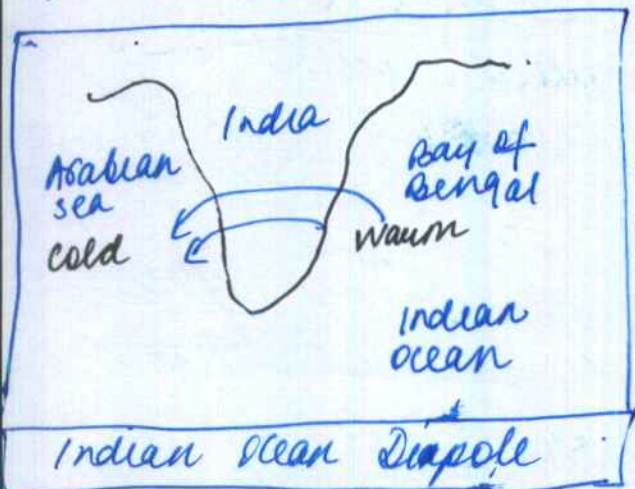 India
Arabian
sea
cold
Bay of
Bengal
warm
Indian
ocean
Indian Ocean Diapole